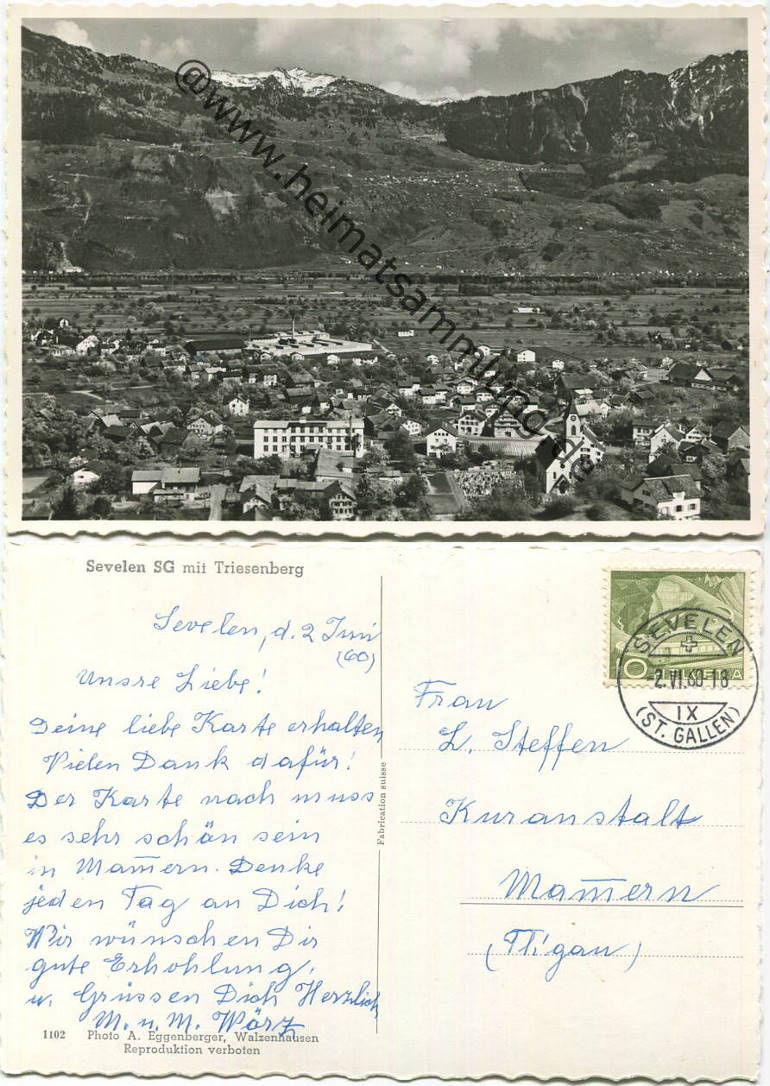 @www.heimatsammlung.de
Sevelen SG mit Triesenberg
Sevelen, d. 2 Juni
(60)
Unsre Liebe!
Deine liebe Karte erhalten
Vielen Dank dafür!
Der Karte nach muss
es sehr schön sein
in Mam̅ern. Denke
jeden Tag an Dich!
Wir wünschen Dir
gute Erhohlung,
u. Grüssen Dich Herzlich
M. u. M. Wörz
1102 Photo A. Eggenberger, Walzenhausen
Reproduktion verboten
Fabrication suisse
10
HELVETIA
SEVELEN
-2.VI.60-18
IX
(ST. GALLEN)
Frau
L. Steffen
Kuranstalt
Mam̅ern